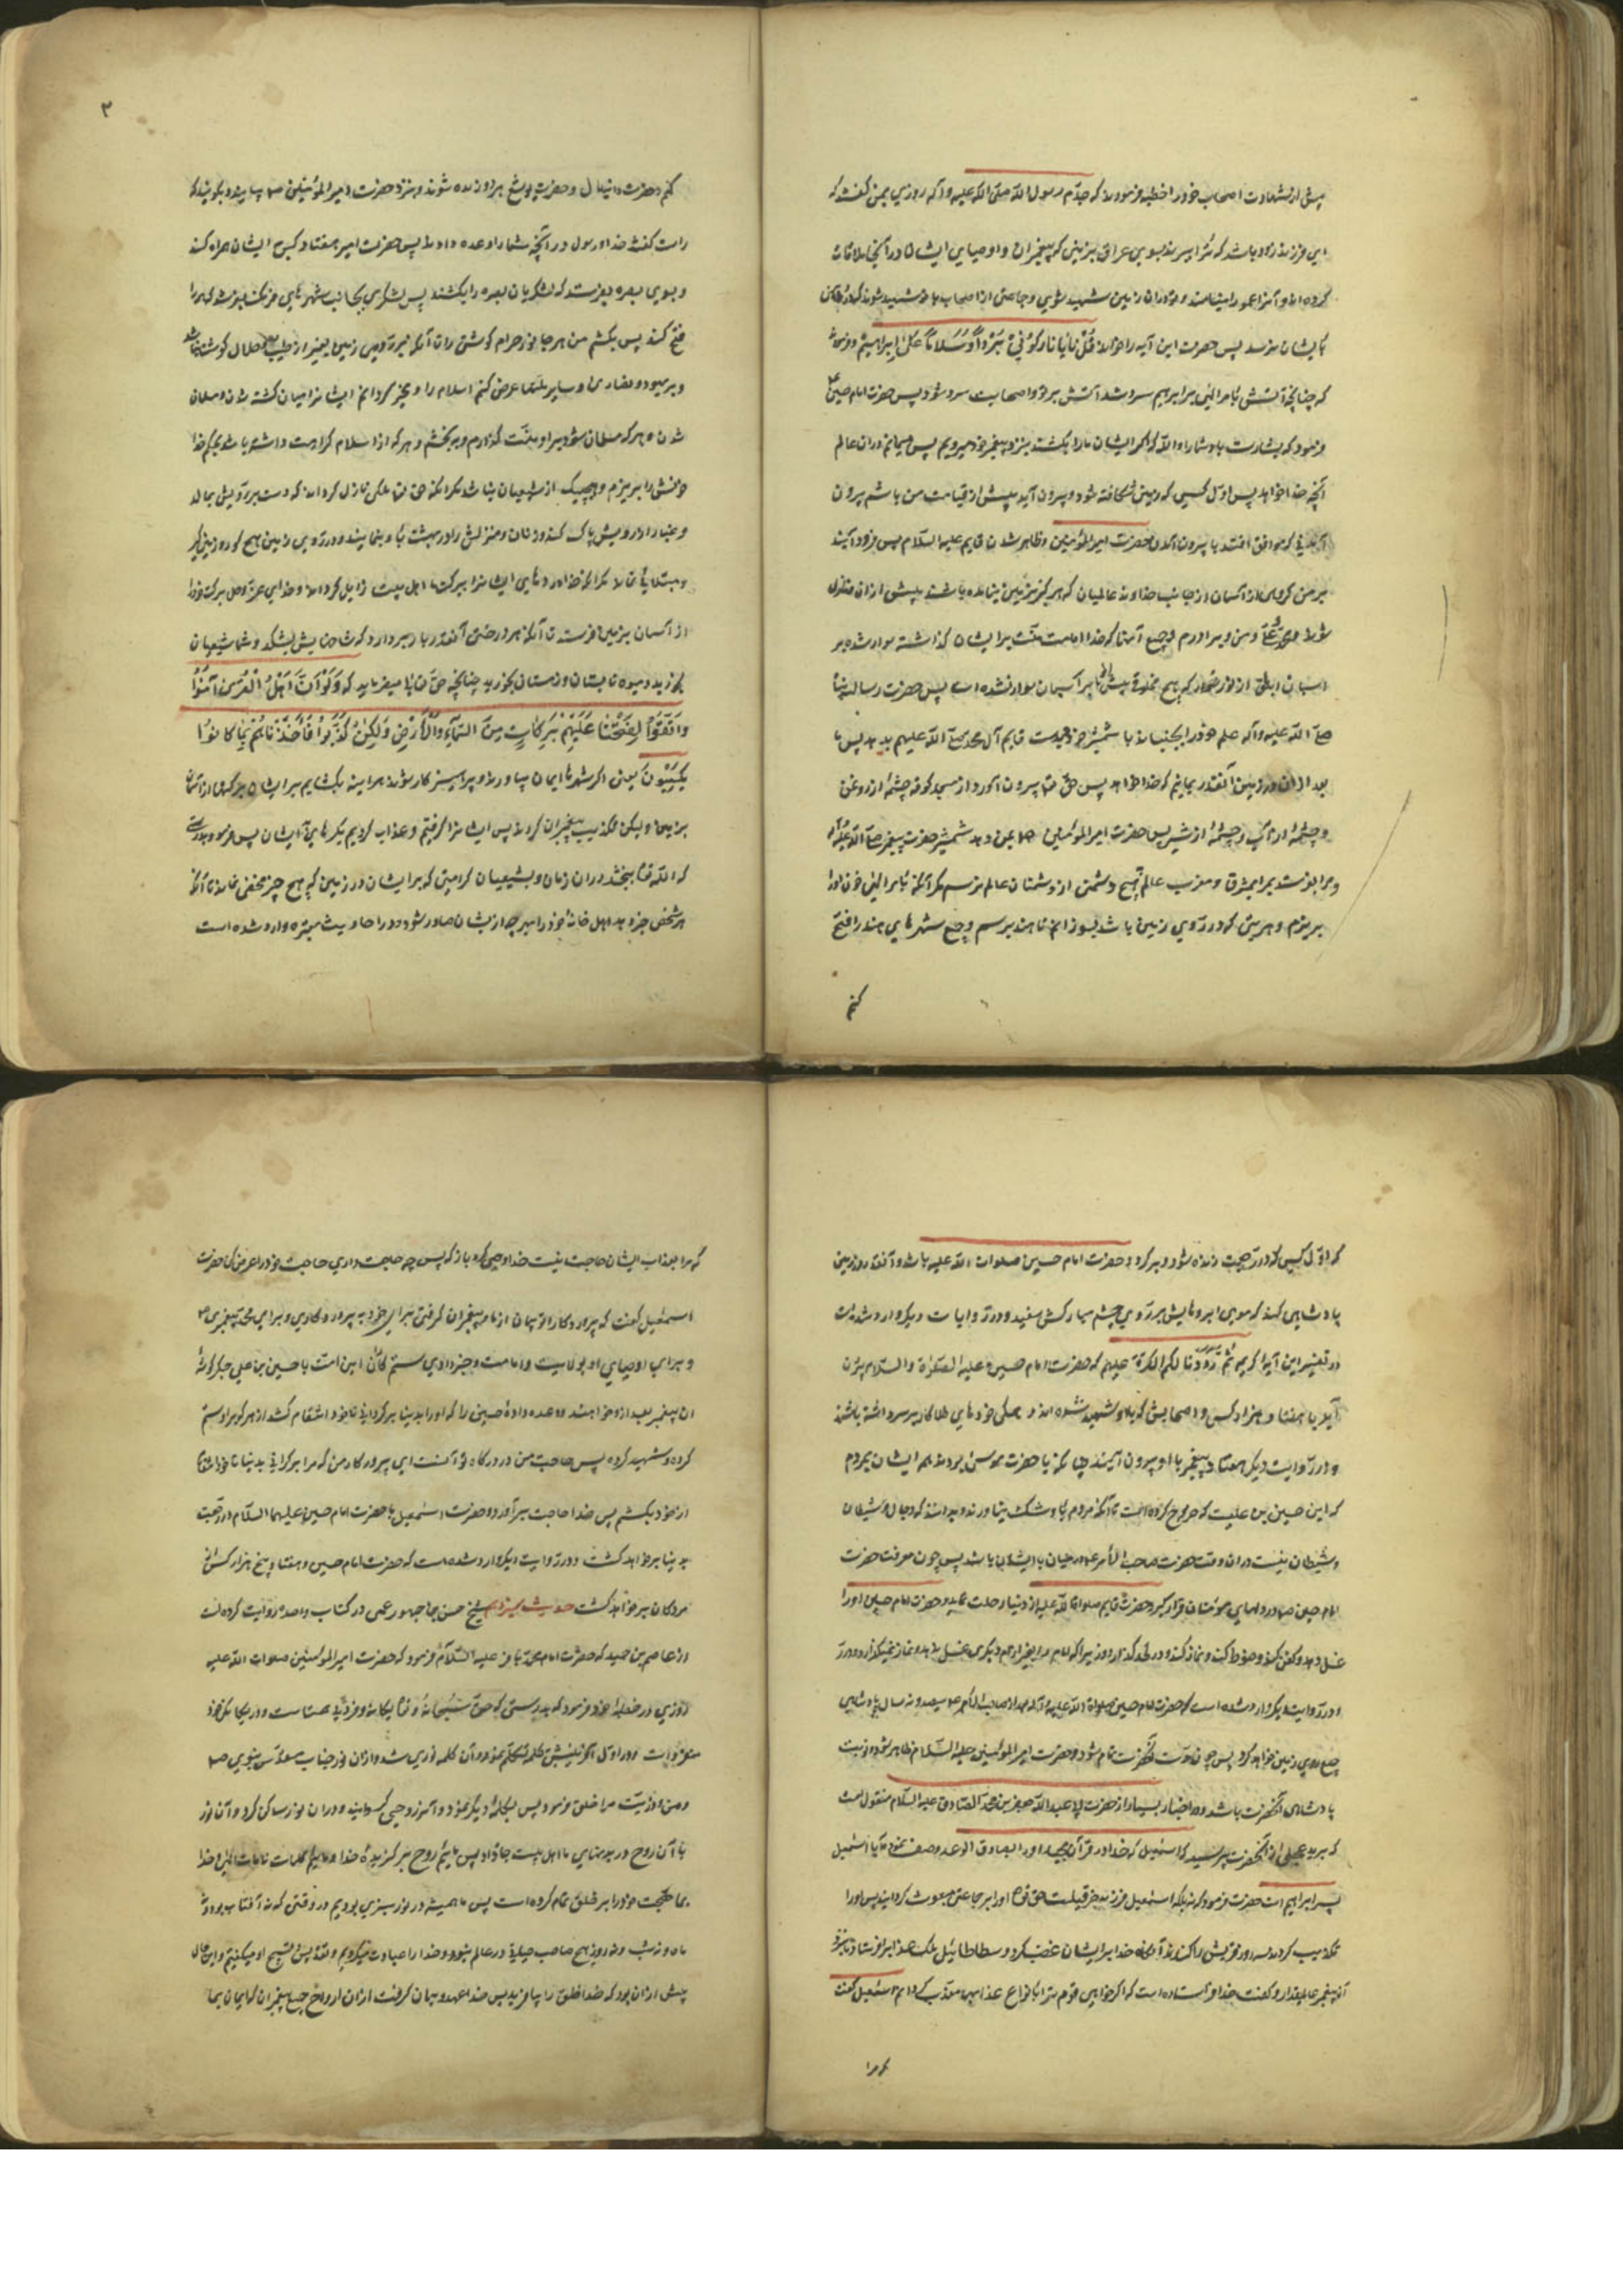 پیش از شهادت اصحاب خود را خطبه فرمودند که جدّم رسول الله صلّی الله علیه و آله روزی بمن گفت که
ای فرزند زود باشد که ترا ببرند بسوی عراق بزمینی که پیغمبران و اوصیای ایشان در آنجا ملاقات
کرده‌اند و آنرا عمورا مینامند و تو در آن زمین شهید شوی و جماعتی از اصحاب با تو شهید شوند که درد آهن
بایشان نرسد پس حضرت این آیه را خواند قُلْنَا یَا نَارُ کُونِی بَرْدًا وَسَلَامًا عَلَی إِبْرَاهِیمَ و فرمود
که چنانچه آتش بامر الهی بر ابراهیم سرد شد آتش بر تو و اصحابت سرد شود پس حضرت امام حسین ع
فرمود که بشارت باد شما را والله که اگر ایشان ما را بکشند بنزد پیغمبر خود میرویم پس میمانیم در آن عالم
آنچه خدا خواهد پس اوّل کسی که زمین شکافته شود و بیرون آید پیش از قیامت من باشم بیرون
آمدنی که موافق افتد با بیرون آمدن حضرت امیر المؤمنین و ظاهر شدن قایم علیه السّلام پس فرود آیند
بر من گروهی از آسمان از جانب خداوند عالمیان که هرگز بزمین نیامده باشند پیش از آن و نازل
شوند محمّد و علی و من و برادرم و جمیع آنها که خدا امامت منّت بر ایشان گذاشته سوار شده بر
اسبان ابلق از نور خدا که هیچ مخلوقی پیش از ما بر آنها سوار نشده است پس حضرت رسالت پناه
صلّی الله علیه و آله علم خود را بجنباند با شمشیر خود بدست قایم آل محمد صلّی الله علیهم بدهد پس ما
بعد از آن در زمین آنقدر بمانیم که خدا خواهد پس حق تعالی بیرون آورد از مسجد کوفه چشمهٔ از روغن
و چشمهٔ از آب و چشمهٔ از شیر پس حضرت امیر المؤمنین ع بمن دهد شمشیر حضرت پیغمبر صلّی الله علیه و آله
و مرا بفرستد بمشرق و مغرب عالم هیچ دشمن از دشمنان عالم نرسم مگر آنکه بامر الهی خون او را
بریزم و هر بتی که در روی زمین باشد بسوزانم تا بهند برسم و جمیع شهرهای هند را فتح
کنم
۳
کنم و حضرت دانیال و حضرت یوشع هر دو زنده شوند و بنزد حضرت امیر المؤمنین ص بیایند و بگویند که
راست گفت خدا و رسول در آنچه شما را وعده دادند پس حضرت امیر هفتاد کس ایشان همراه کند
و بسوی بصره بفرستد که لشکریان بصره را بکشند پس لشکری بجانب شهرهای فرنگ بفرستد که همه را
فتح کند پس بکشم من هر جانور حرام گوشتی را تا آنکه نبوده در روی زمین بغیر از طیّب و حلال گوشت نباشد
و بر یهود و نصاری و سایر ملتها عرض کنم اسلام را و مخیّر گردانم ایشانرا میان کشته شدن و مسلمان
شدن و هر که مسلمان شود بر او منّت گذارم و ببخشم و هر که از اسلام کراهت داشته باشد بحکم خدا
خونش را بریزم و هیچیک از شیعیان نباشد مگر آنکه حق تعالی ملکی نازل گرداند که دست بر رویش بمالد
و غبار از رویش پاک کند و زنان و منزلش را در بهشت باو بنماید و در روی زمین هیچ کور و زمین‌گیر
و مبتلائی نماند مگر آنکه خدا دردهای ایشانرا ببرکت ما اهل بیت زایل گرداند و خدای عزّ و جل برکت خود را
از آسمان بزمین فرستد تا آنکه هر درختی آنقدر بار بردارد که شاخهایش بشکند و شما شیعیان
بخورید و میوه تابستان در زمستان بخورید چنانچه حق تعالی میفرماید که وَلَوْ أَنَّ أَهْلَ الْقُرَی آمَنُوا
وَاتَّقَوْا لَفَتَحْنَا عَلَیْهِمْ بَرَکَاتٍ مِنَ السَّمَاءِ وَالْأَرْضِ وَلَکِنْ کَذَّبُوا فَأَخَذْنَاهُمْ بِمَا کَانُوا
یَکْسِبُونَ یعنی اگر شهرها ایمان بیاورند و پرهیزکار شوند هر اینه بگشایم بر ایشان برکتها از آسمان
بزمین و لیکن تکذیب پیغمبران کردند پس ایشانرا گرفتیم و عذاب کردیم بکردهای ایشان پس فرمود بدرستی
که الله تعالی ببخشد در آن زمان بشیعیان کرامتی که بر ایشان در زمین که هیچ چیز مخفی نماند تا آنکه
هر شخص خبر دهد اهل خانهٔ خود را بهر چه از ایشان صادر شود و در احادیث معتبره وارد شده است
که اوّل کسی که در رجعت زنده شود و برگردد حضرت امام حسین صلوات الله علیه باشد و آنقدر در زمین
پادشاهی کند که موی ابروهایش بر روی چشم مبارکش بیفتد و در روایات دیگر وارد شده است
در تفسیر این آیهٔ کریمه ثُمَّ رَدَدْنَا لَکُمُ الْکَرَّةَ عَلَیْهِمْ که حضرت امام حسین علیه الصلوة والسّلام بیرون
آید با هفتاد هزار کس و اصحابش که با او شهید شده‌اند و همگی خودهای طلا کار بر سر داشته باشند
و در روایت دیگر هفتاد پیغمبر با او بیرون آیند چنانکه با حضرت موسی بودند همه ایشان بمردم
که این حسین بن علیست که خروج کرده است تا آنکه مردم باو شک نیاورند و بدانند که دجال و شیطان
و شیطان نیست در آن وقت حضرت صاحب الأمر ع در میان ایشان باشد پس چون معرفت حضرت
امام حسین ص در دلهای مؤمنان قرار گیرد حضرت قایم صلوات الله علیه از دنیا رحلت نماید و حضرت امام حسین او را
غسل دهد و کفن کند و حنوط کند و نماز کند و در لحد گذارد زیرا که امام را بغیر امام دیگری غسل ندهد و نماز نمیگذارد و در
و در روایت دیگر وارد شده است که حضرت امام حسین صلواة الله علیه و آله بعد از صاحب الأمر ع سیصد و نه سال پادشاهی
جمیع روی زمین خواهد کرد پس چون مدّت آنحضرت تمام شود و حضرت امیر المؤمنین علیه السّلام ظاهر شود و نوبت
پادشاهی آنحضرت باشد و در اخبار بسیار از حضرت ابا عبدالله جعفر بن محمّد الصّادق علیه السّلام منقول است
که برید عجلی از آنحضرت پرسید که اسمعیل که خدا در قرآن مجید او را بصادق الوعد وصف نموده آیا اسمعیل
پسر ابراهیم است حضرت فرمود که نه بلکه اسمعیل فرزند حزقیلست حق تعالی او را بر جماعتی مبعوث گردانید پس او را
تکذیب کردند و سر و رویش را کندند آنگاه خدا بر ایشان غضب کرد و سطاطائیل ملک عذاب را فرستاد بنزد
آن پیغمبر عالیمقدار و گفت خدا فرستاده است که اگر خواهی قوم ترا بانواع عذابها معذّب گردانم اسمعیل گفت
که مرا
که مرا بعذاب ایشان حاجت نیست خدا وحی کرد باز که پس چه حاجت داری حاجت خود را عرض کن حضرت
اسمعیل گفت که پروردگارا تو پیمان از ما پیغمبران گرفتی برای خود به پروردگاری و برای محمّد به پیغمبری ص
و برای اوصیای او بولایت و امامت و خبر دادی ستم کاران این امّت با حسین بن علی جگرگوشهٔ
آن پیغمبر بعد از او خواهند و وعده دادهٔ حسین را که او را بدنیا برگردانی تا خود انتقام کشد از هر که بر او ستم
کرده و شهید کرده پس حاجت من در درگاه تو آنست ای پروردگار من که مرا برگردانی بدنیا تا خود انتقام
از خود بکشم پس خدا حاجت برآورد و حضرت اسمعیل با حضرت امام حسین علیهما السّلام در رجعت
بدنیا برخواهد گشت و در روایت دیگر وارد شده است که حضرت امام حسین و هفتاد و پنج هزار کس از
مردگان برخواهد گشت حدیث سیزدهم شیخ حسن بن جمهور عمی در کتاب واحده روایت کرده است
از عاصم بن حمید که حضرت امام محمّد باقر علیه السّلام فرمود که حضرت امیر المؤمنین صلوات الله علیه
روزی در خطبهٔ خود فرمود که بدرستی که حق سُبْحَانَهُ و تعالی یگانه و فرد بی همتاست و در یگانگی خود
متفرّد است و در اوّل آفرینش بکلمه تکلّم نمود و آن کلمه نوری شد و از آن نور جناب مقدّس نبوی ص
و من و ذریّت مرا خلق فرمود پس بکلمهٔ دیگر تکلّم نمود و آنرا روحی گردانید و در آن نور ساکن کرد و آن نور
با آن روح در بدنهای ما اهل بیت جا داد پس مائیم روح برگزیدهٔ خدا و مائیم کلمات تامات الهی و خدا
بما حجّت خود را بر خلق تمام کرده است پس ما همیشه در نور سبزی بودیم در وقتی که نه آفتاب بود و نه
ماه و نه شب و نه روز و هیچ صاحب حیاتی در عالم نبود و خدا را عبادت میکردیم و تقدیس و تسبیح او میکنیم و این حال
پیش از آن بود که خدا خلق را بیافریند پس خدا عهد و پیمان گرفت از آن ارواح جمیع پیغمبران که ایمان بما